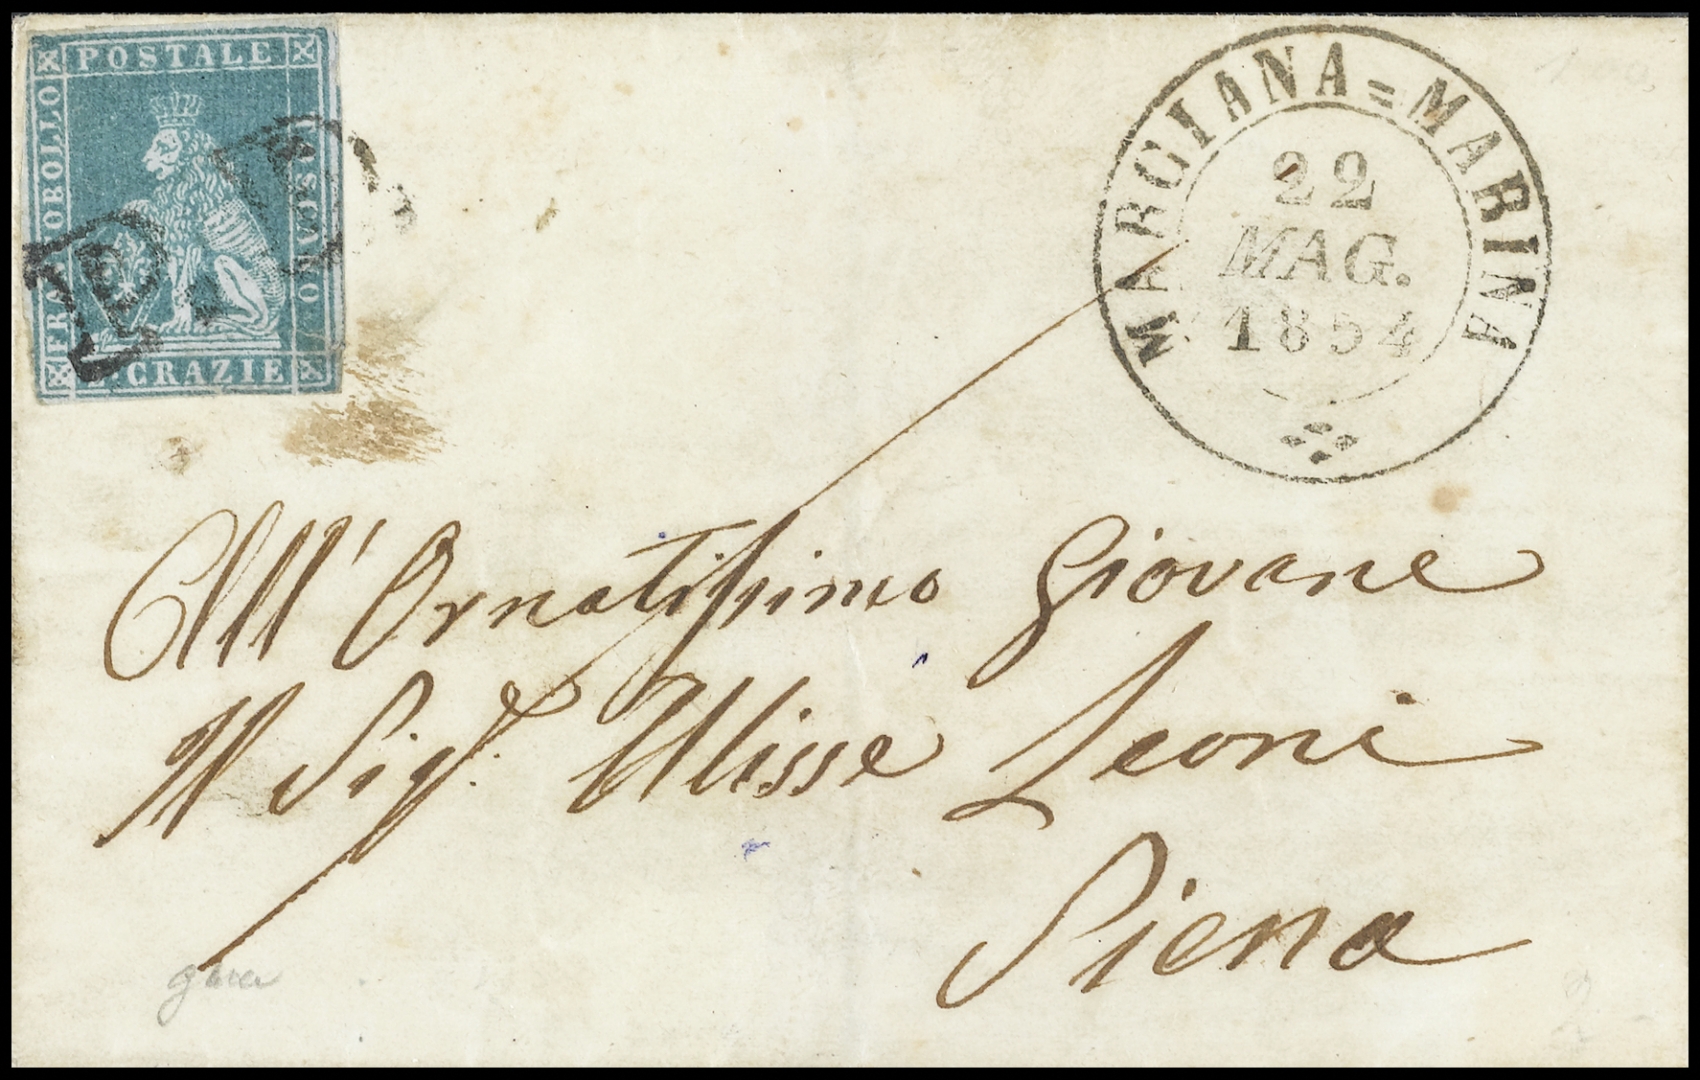 POSTALE
FRANCOBOLLO
TOSCANO
CRAZIE
PD
MARCIANA=MARINA
22
MAG.
1854
All' Ornatissimo Giovane
Il Sigr. Ulisse Leoni
Siena
2